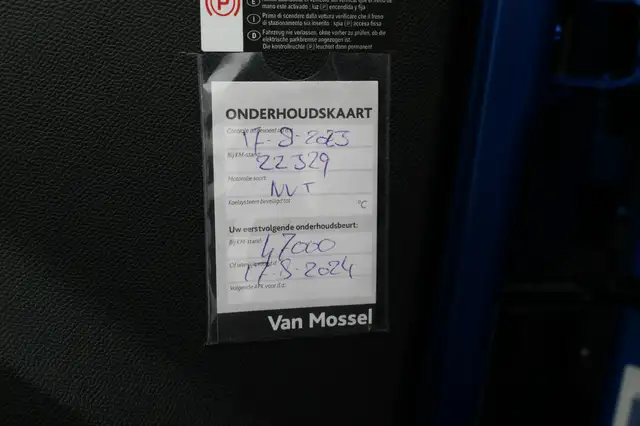 mano este activado: luz (P) encendida y fija
I Prima di scendere dalla vettura verificare che il freno
di stazionamento sia inserito: spia (P) accesa fissa
D Fahrzeug nie verlassen, ohne vorher zu prüfen, ob die
elektrische parkbremse angezogen ist.
Die kontrolleuchte (P) leuchtet dann permanent
ONDERHOUDSKAART
17-8-2023
Bij KM-stand:
22329
Motorolie soort:
NVT
Koelsysteem beveiligd tot
°C
Uw eerstvolgende onderhoudsbeurt:
Bij KM stand:
47000
17-8-2024
Volgende APK voor d.d.
Van Mossel